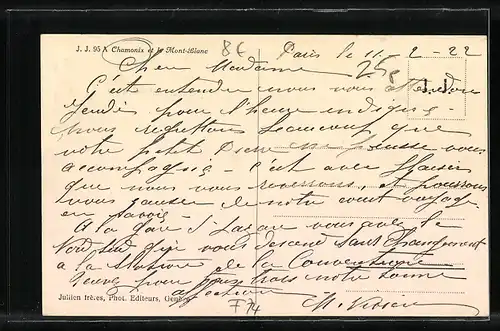 J. J. 95 A Chamonix et le Mont-Blanc
86
Paris le 11-2-22
Chère Madame
C'est entendu nous vous attendons
Jeudi pour l'heure indiquée
nous regrettons beaucoup que
votre petit Pierre ne puisse vous
accompagner - c'est avec plaisir
que nous vous reverrons, et pourrons
vous causer de notre court voyage
en Savoie -
A la gare St Lazare vous avez le
Nord Sud qui vous descend sans changement
à la Station de la Convention
pour vous trois notre bonne
affection
Julien frères, Phot. Editeurs, Genève
F74